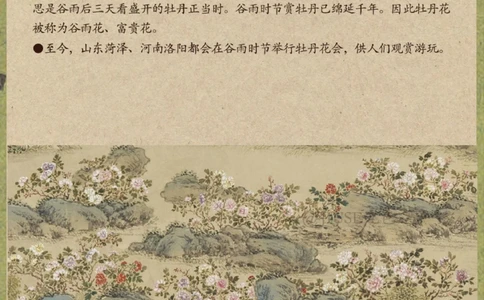 思是谷雨后三天看盛开的牡丹正当时。谷雨时节赏牡丹已绵延千年。因此牡丹花
被称为谷雨花、富贵花。
●至今，山东菏泽、河南洛阳都会在谷雨时节举行牡丹花会，供人们观赏游玩。